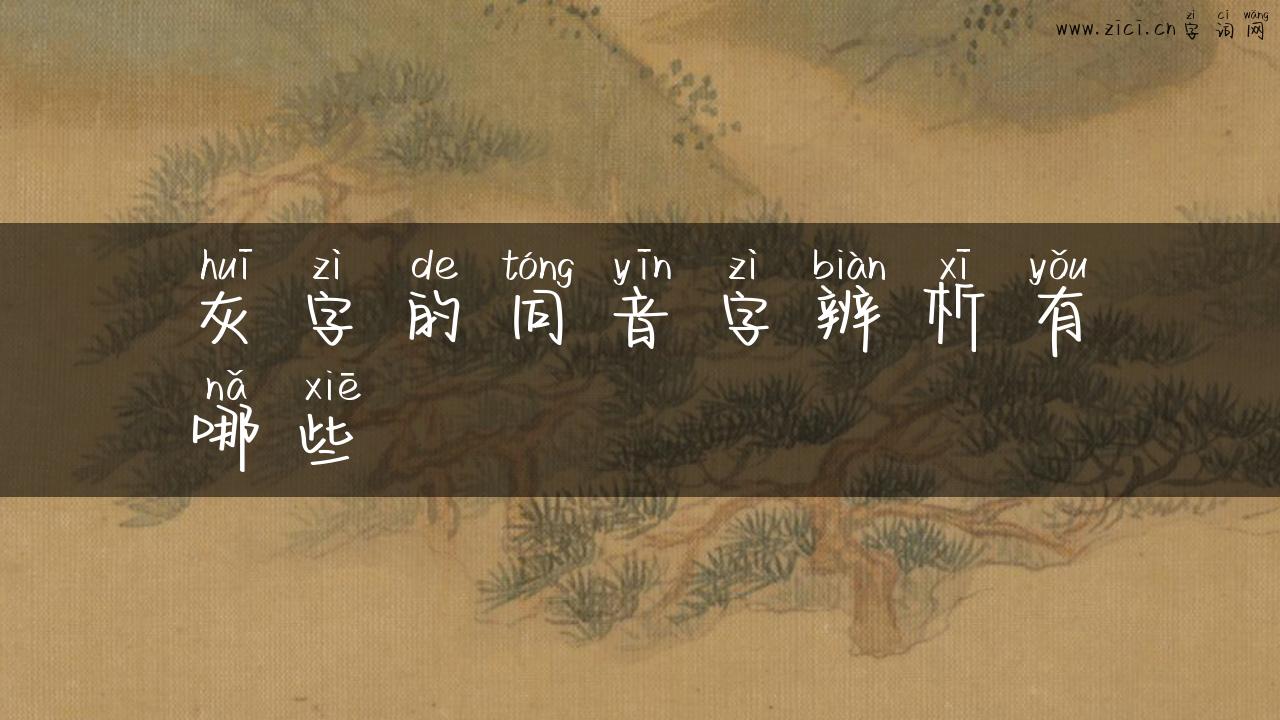 zì cí wǎng
www.zící.cn 字词网
huī zì de tóng yīn zì biàn xī yǒu
灰字的同音字辨析有
nǎ xiē
哪些